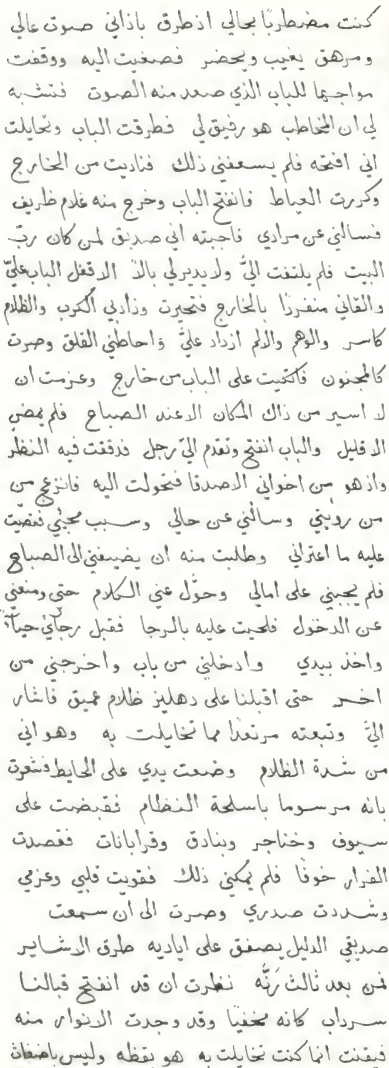 كنت مضطربًا بحالي اذ طرق باذاني صوت عالي
ومرهق يغيب ويحضر فصغيت اليه ووقفت
مواجهًا للباب الذي صعد منه الصوت فتشبه
لي ان المخاطب هو رفيق لي فطرقت الباب وتخايلت
اني افتحه فلم يسعفني ذلك فناديت من الخارج
وكررت العياط فانفتح الباب وخرج منه غلام ظريف
فسالني عن مرادي فاجبته اني صديق لمن كان ربّ
البيت فلم يلتفت اليّ ولا يدير لي بالاً الا قفل الباب عليّ
والقاني منفرزًا بالخارج فتحيرت وزاد بي الكرب والظلام
كاسر والوهم والالم ازداد عليّ واحاطني القلق وصرت
كالمجنون فاتكيت على الباب من خارج وعزمت ان
لا اسير من ذاك المكان الا عند الصباح فلم يمض
الا قليل والباب انفتح وتقدم اليّ رجل فدققت فيه النظر
واذ هو من اخواني الاصدقا فتحولت اليه فانزعج من
من رويتي وسالني عن حالي وسبب مجيئي فقصيت
عليه ما اعتراني وطلبت منه ان يضيفني الى الصباح
فلم يجبني على امالي وحوّل عني الكلام حتى ومنعني
عن الدخول فلحيت عليه بالرجا فقبل رجائي حياً
واخذ بيدي وادخلني من باب واخرجني من
اخر حتى اقبلنا على دهليز ظلام عميق فاشار
اليّ وتبعته مرتعدًا مما تخايلت به وهو اني
من شدة الظلام وضعت يدي على الحايط فشعرت
بانه مرسوما باسلحة النظام فقبضت على
سيوف وخناجر وبنادق وقرابانات فقصدت
الفرار خوفًا فلم يمكني ذلك فقويت قلبي وعزمي
وشددت صدري وصرت الى ان سمعت
صديقي الدليل يصفق على اياديه طرق الاشاير
لمن بعد ثالث رنّه نظرت ان قد انفتح قبالنا
سرداب كانه مخفيًا وقد وجدت الانوار منه
فيقنت انما كنت تخايلت به هو يقظه وليس باضغاث